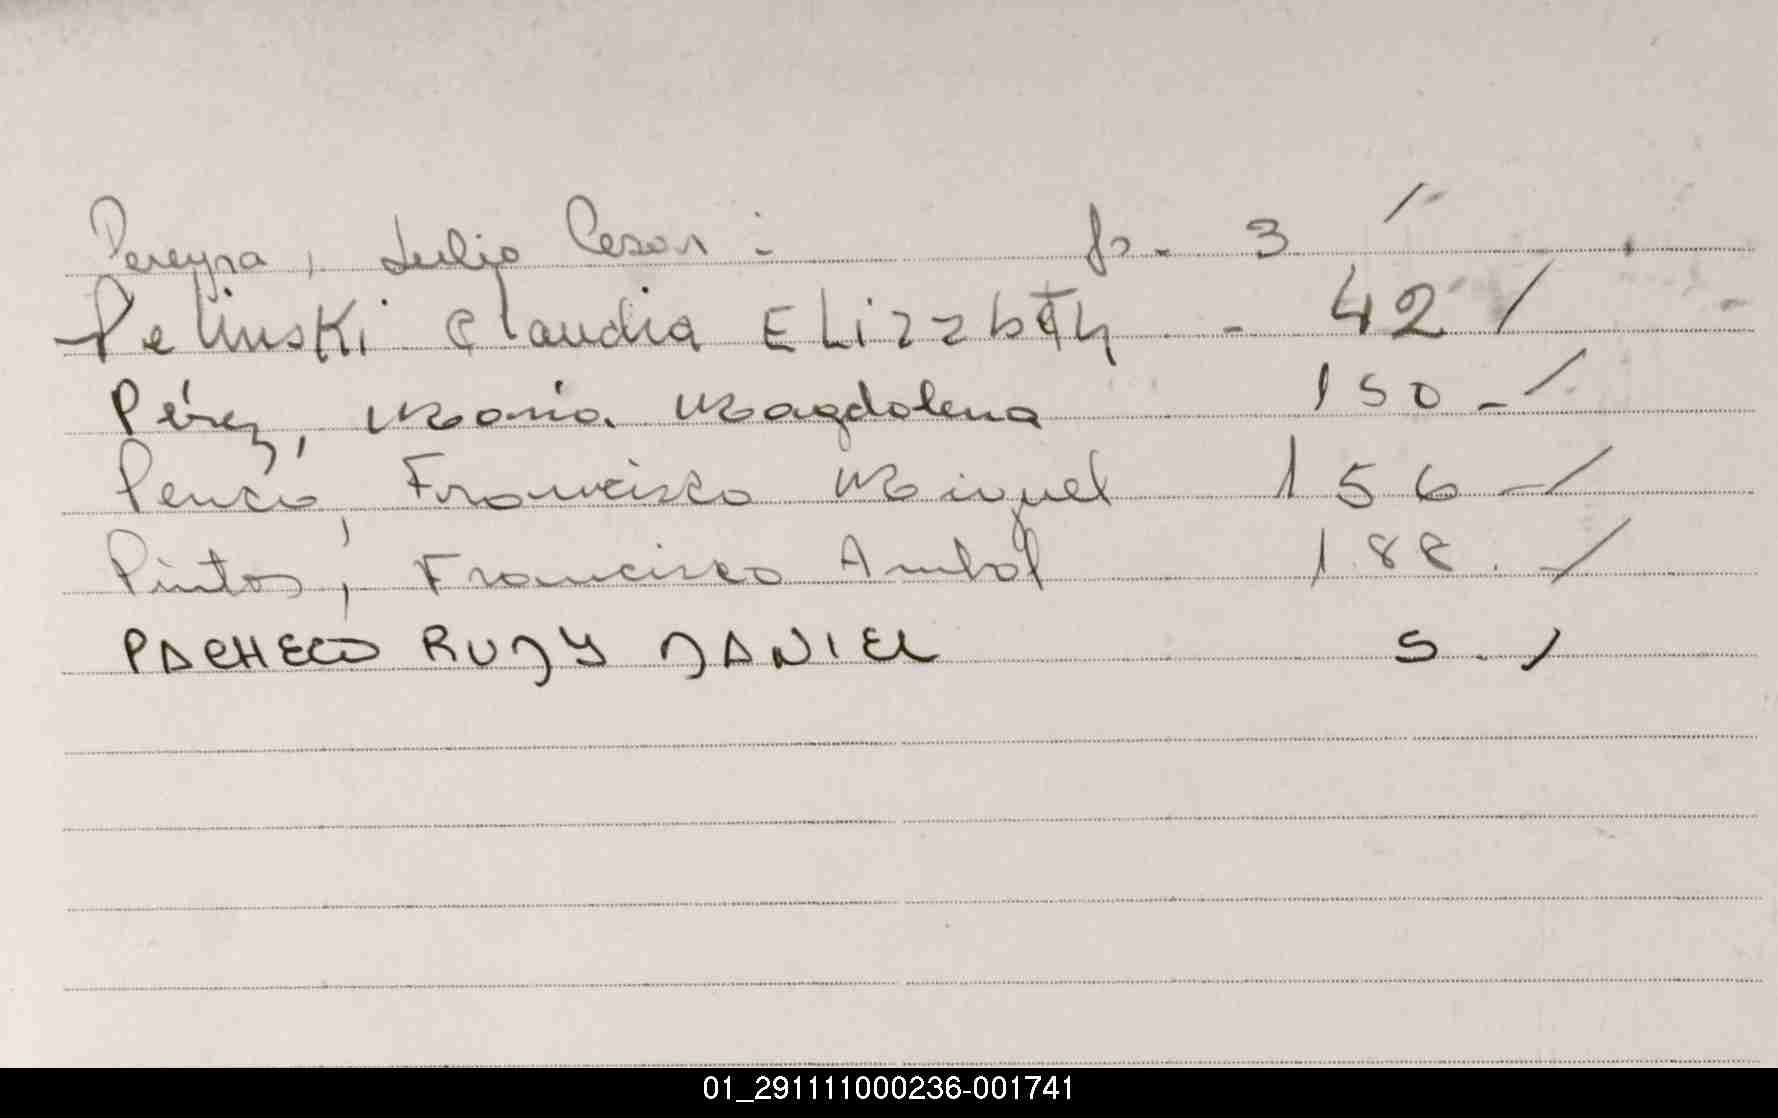 Pereyra, Julio Cesar :- fs. 3
Pelinski Claudia ELizzbeth - 42
Pérez, María Magdalena 150 -
Francisco Miguel 156 -
Pintos, Francisco Anibal 188. -
PACHECO RUDY DANIEL 5. -
01_291111000236-001741